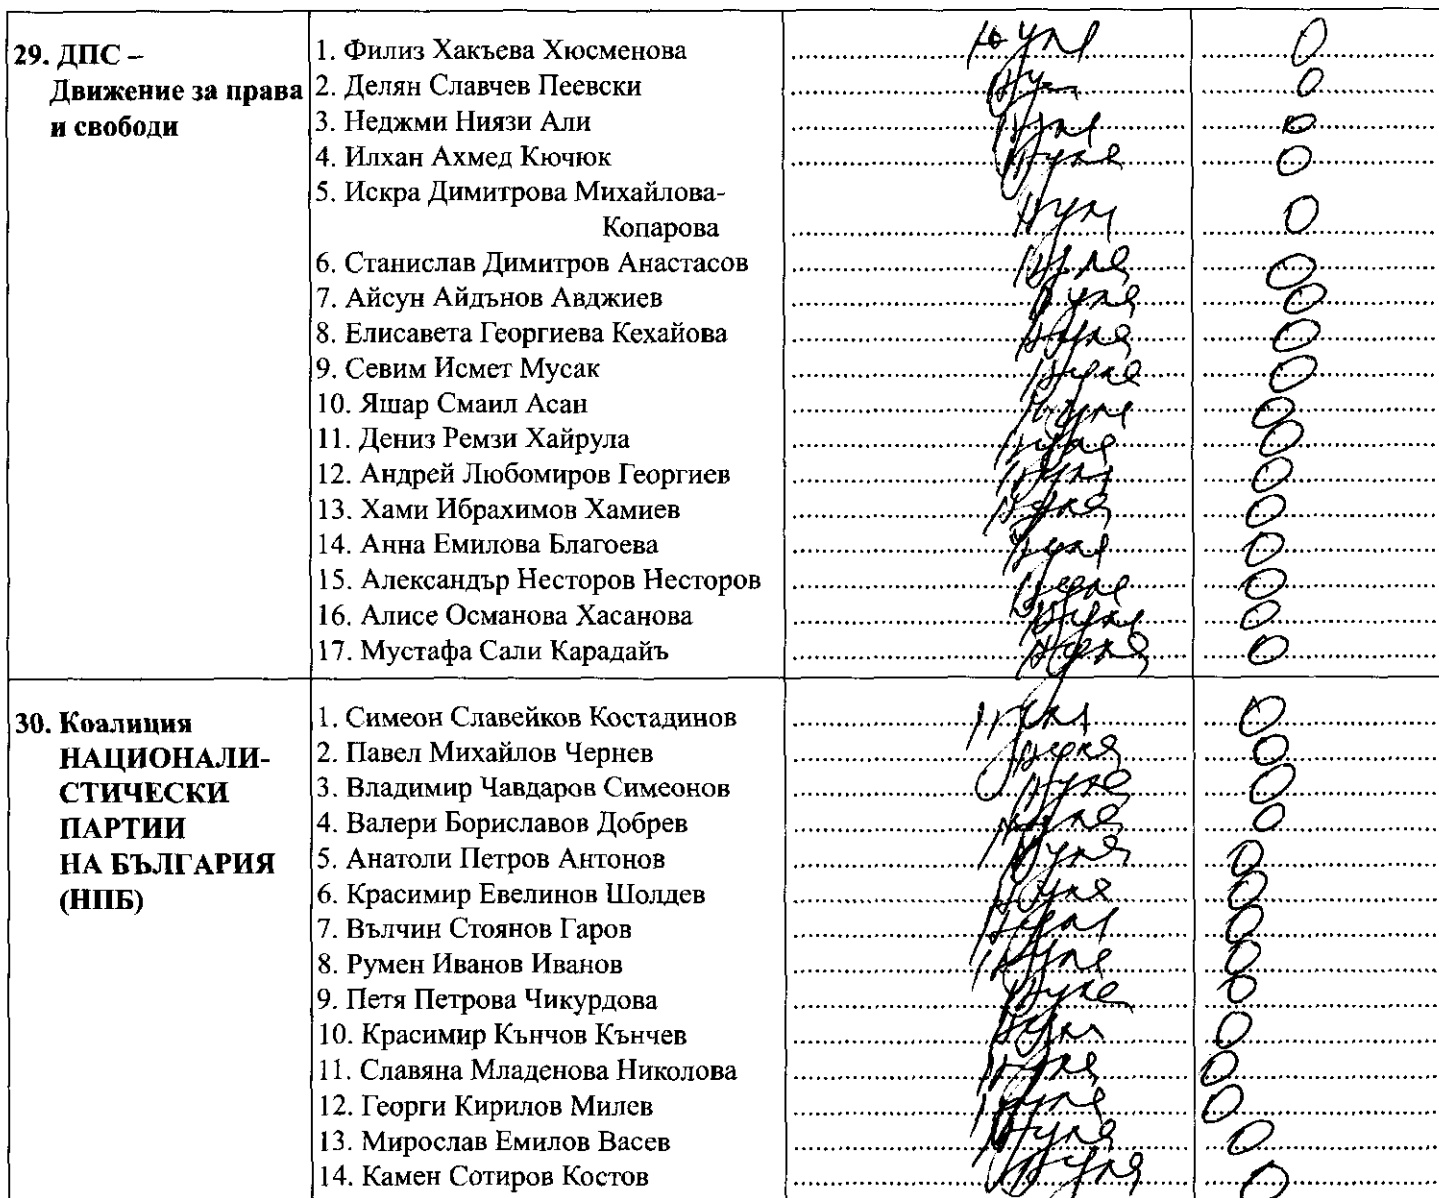 29. ДПС –
Движение за права
и свободи
1. Филиз Хакъева Хюсменова нуля 0
2. Делян Славчев Пеевски нуля 0
3. Неджми Ниязи Али нуля 0
4. Илхан Ахмед Кючюк нуля 0
5. Искра Димитрова Михайлова-
Копарова нуля 0
6. Станислав Димитров Анастасов нуля 0
7. Айсун Айдънов Авджиев нуля 0
8. Елисавета Георгиева Кехайова нуля 0
9. Севим Исмет Мусак нуля 0
10. Яшар Смаил Асан нуля 0
11. Дениз Ремзи Хайрула нуля 0
12. Андрей Любомиров Георгиев нуля 0
13. Хами Ибрахимов Хамиев нуля 0
14. Анна Емилова Благоева нуля 0
15. Александър Несторов Несторов нуля 0
16. Алисе Османова Хасанова нуля 0
17. Мустафа Сали Карадайъ нуля 0
30. Коалиция
НАЦИОНАЛИ-
СТИЧЕСКИ
ПАРТИИ
НА БЪЛГАРИЯ
(НПБ)
1. Симеон Славейков Костадинов нуля 0
2. Павел Михайлов Чернев нуля 0
3. Владимир Чавдаров Симеонов нуля 0
4. Валери Бориславов Добрев нуля 0
5. Анатоли Петров Антонов нуля 0
6. Красимир Евелинов Шолдев нуля 0
7. Вълчин Стоянов Гаров нуля 0
8. Румен Иванов Иванов нуля 0
9. Петя Петрова Чикурдова нуля 0
10. Красимир Кънчов Кънчев нуля 0
11. Славяна Младенова Николова нуля 0
12. Георги Кирилов Милев нуля 0
13. Мирослав Емилов Васев нуля 0
14. Камен Сотиров Костов нуля 0